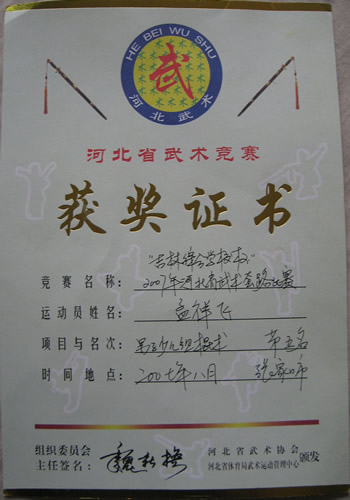 HE BEI WU SHU
武
河北武术
河北省武术竞赛
获奖证书
竞赛名称: 2007年河北省武术套路比赛
运动员姓名: 孟祥飞
项目与名次: 第五名
时间地点: 二00七年八月 张家口市
组织委员会
主任签名:
河北省武术协会
河北省体育局武术运动管理中心 颁发